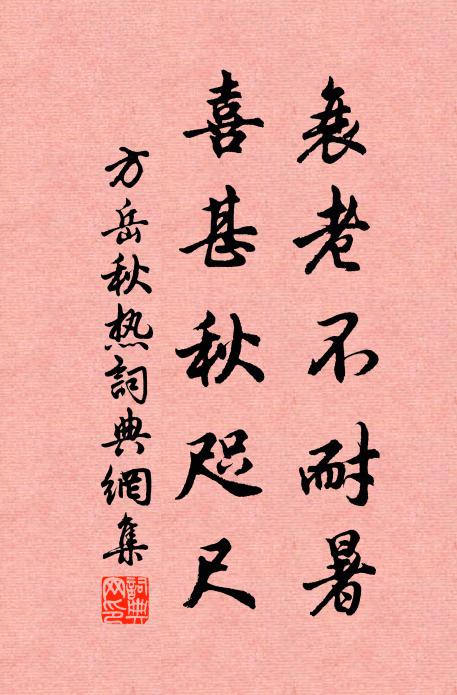 衰老不耐暑
喜甚秋咫尺
方岳秋热詞典網集
詞典网印